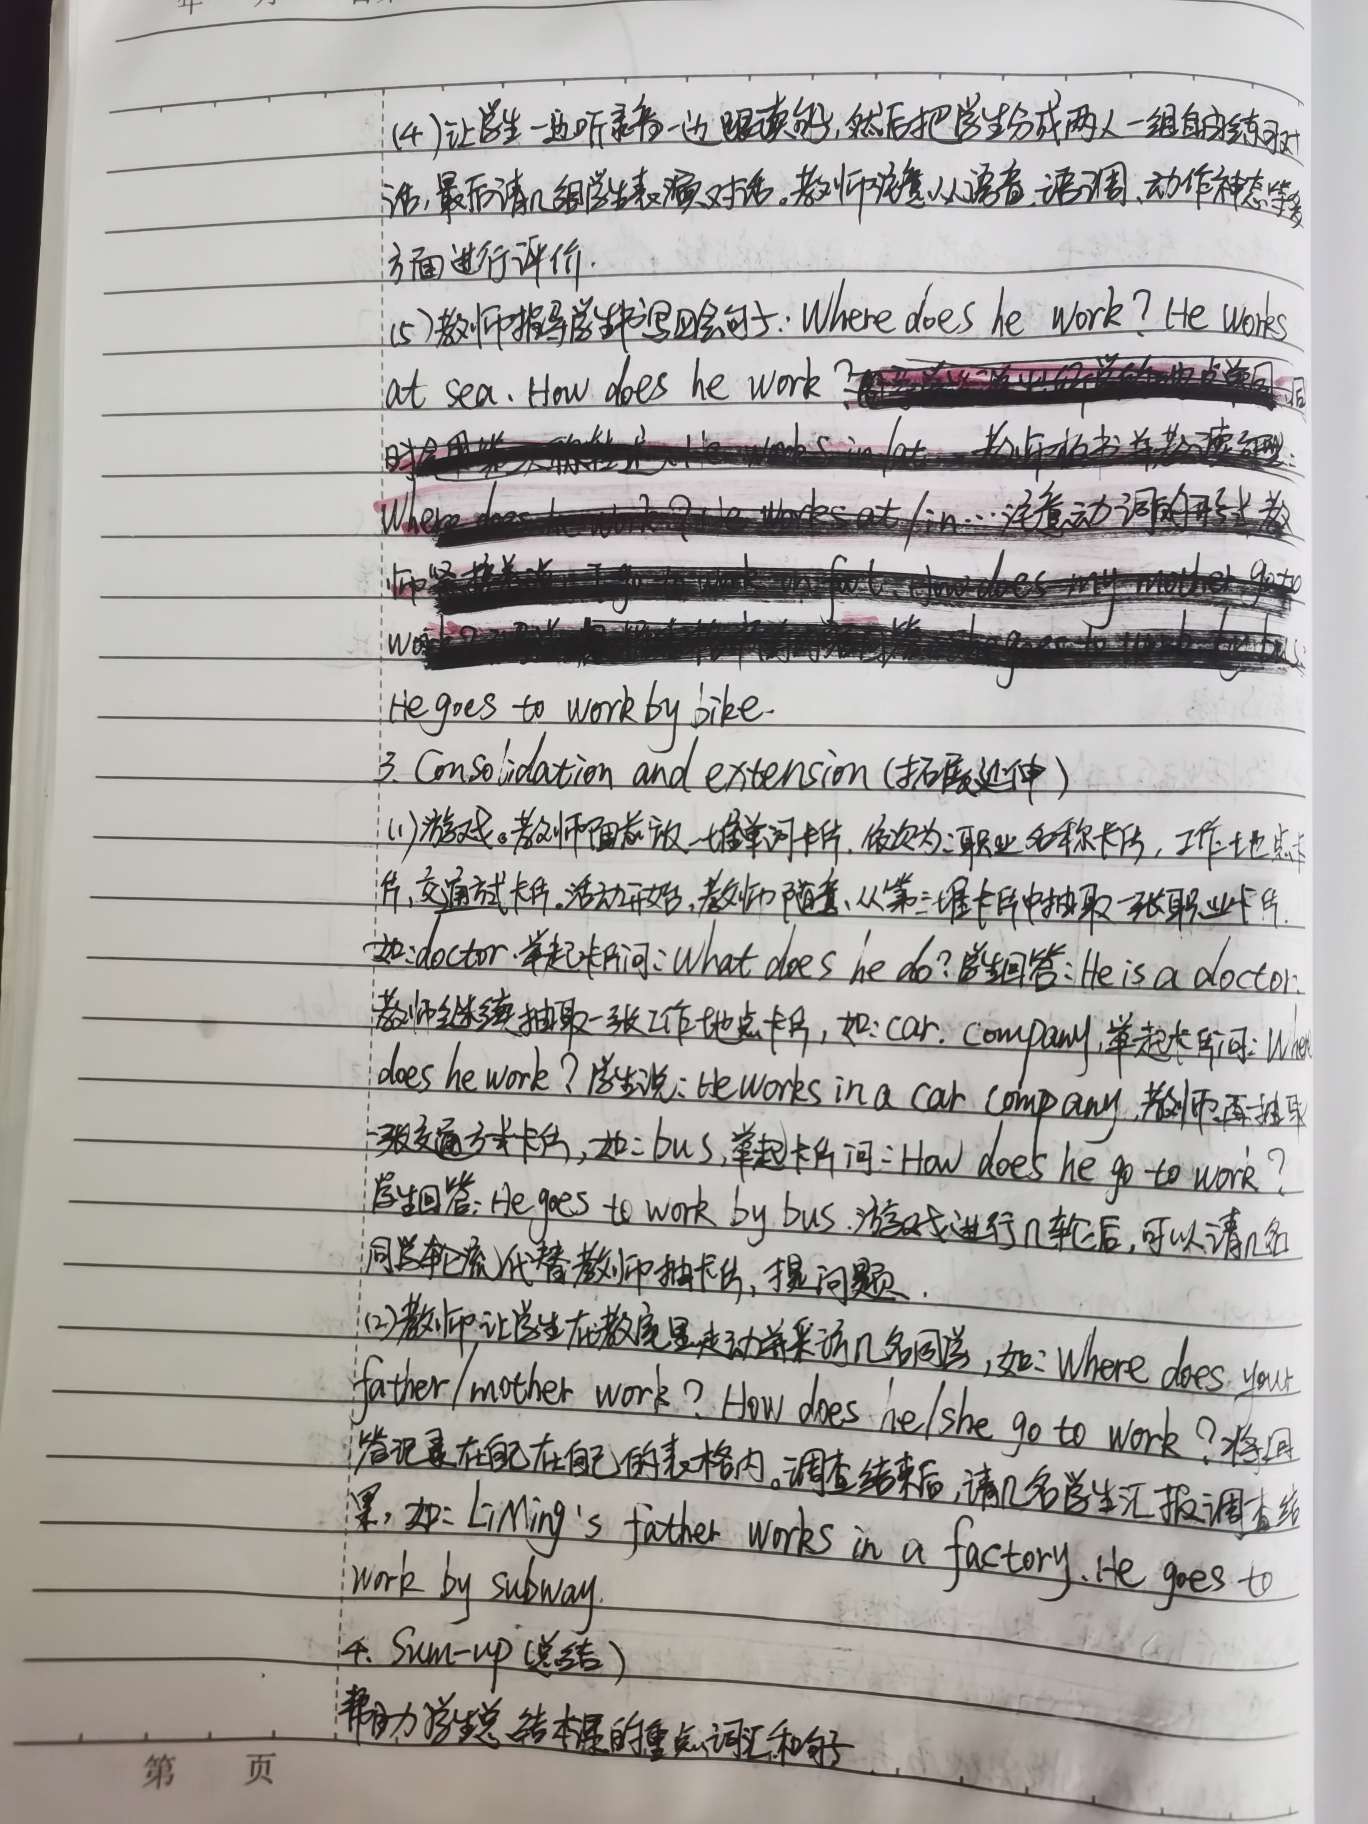 年 月
(4)让学生一边听录音一边跟读句子,然后把学生分成两人一组自由练习对
话,最后请几组学生表演对话。教师注意从语音、语调、动作神态等多
方面进行评价.
(5)教师指导学生书写四会句子:Where does he work? He works
at sea. How does he work?
时 He works in/at 教师板书并教读句型:
Where does he work? He works at/in…注意动词的形式教
师 I go to work on foot. How does my mother go to
work? she goes to work by bus.
He goes to work by bike.
3. Consolidation and extension (拓展延伸)
(1)游戏。教师面前放一堆单词卡片.依次为:职业名称卡片,工作地点卡
片,交通方式卡片。活动开始,教师随意从第三堆卡片中抽取一张职业卡片.
如:doctor.举起卡片问:What does he do?学生回答:He is a doctor.
教师继续抽取一张工作地点卡片,如:car. company,举起卡片问:Where
does he work?学生说:He works in a car company,教师再抽取
一张交通方式卡片,如:bus,举起卡片问:How does he go to work?
学生回答:He goes to work by bus.游戏进行几轮后,可以请几名
同学轮流代替教师抽卡片,提问题.
(2)教师让学生在教室里走动并采访几名同学,如:Where does your
father/mother work? How does he/she go to work?将回
答记录在自己在自己的表格内。调查结束后,请几名学生汇报调查结
果,如:LiMing's father works in a factory. He goes to
work by subway.
4. Sum-up (总结)
帮助学生总结本课的重点词汇和句子
第 页